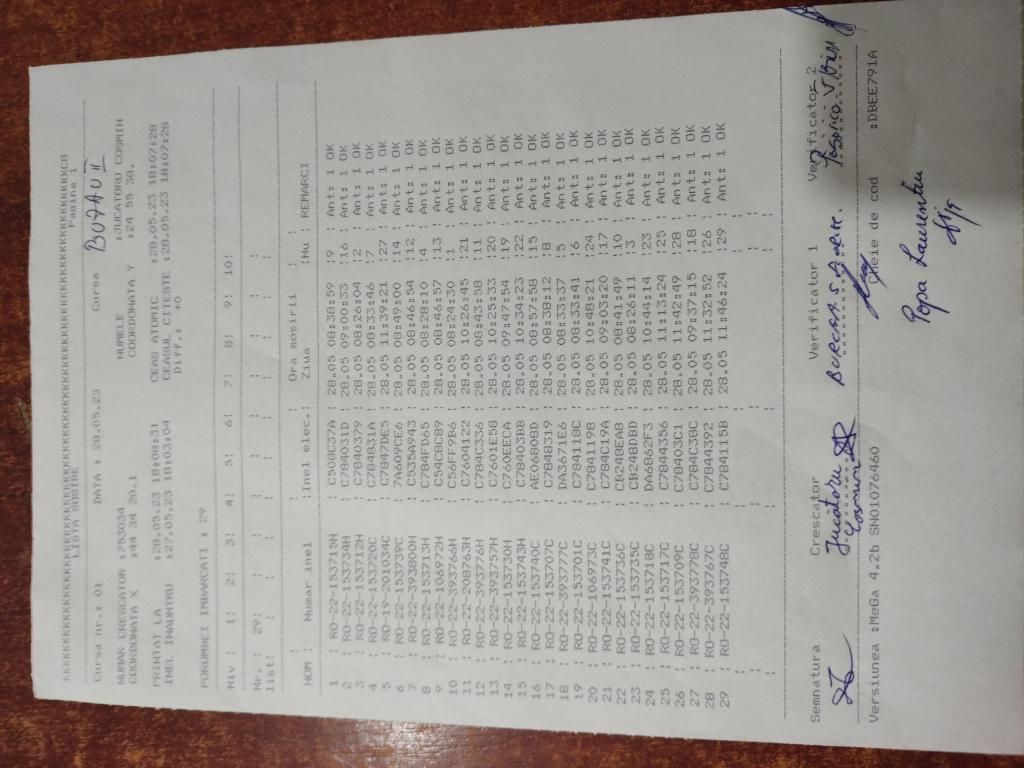 LISTA SOSIRE
Pagina 1
Cursa nr.: 01 DATA : 28.05.23 Cursa BUZAU II
NUMAR CRESCATOR :753034 NUMELE :JUCATORU COSMIN
COORDONATA X :44 34 20.1 COORDONATA Y :24 55 30.
PRINTAT LA :28.05.23 18:08:31 CEAS ATOMIC :28.05.23 18:07:28
INEL INAUNTRU :27.05.23 18:03:04 CEASUL CITESTE :28.05.23 18:07:28
Diff.: +0
PORUMBEI IMBARCATI : 29
Niv : 1: 2: 3: 4: 5: 6: 7: 8: 9: 10:
Nr. : 29: : : : : : : : : :
list: : : : : : : : : :
Ora sosirii
NOM : Numar inel :Inel elec.: Ziua :Nu : REMARCI
1 : RO-22-153715H : C508C37A : 28.05 08:38:59 :9 : Ant: 1 OK
2 : RO-22-153734H : C784031D : 28.05 09:00:33 :16 : Ant: 1 OK
3 : RO-22-153712H : C7840379 : 28.05 08:26:04 :2 : Ant: 1 OK
4 : RO-22-153720C : C784831A : 28.05 08:33:46 :7 : Ant: 1 OK
5 : RO-19-201034C : C7847DE5 : 28.05 11:39:21 :27 : Ant: 1 OK
6 : RO-22-153739C : 7A609CE6 : 28.05 08:49:00 :14 : Ant: 1 OK
7 : RO-22-393800H : C535A943 : 28.05 08:46:54 :12 : Ant: 1 OK
8 : RO-22-153713H : C784FD65 : 28.05 08:28:10 :4 : Ant: 1 OK
9 : RO-22-106972H : C54CBC89 : 28.05 08:46:57 :13 : Ant: 1 OK
10 : RO-22-393766H : C56FF9B6 : 28.05 08:24:30 :1 : Ant: 1 OK
11 : RO-22-208763H : C7604122 : 28.05 10:26:45 :21 : Ant: 1 OK
12 : RO-22-393776H : C784C336 : 28.05 08:43:58 :11 : Ant: 1 OK
13 : RO-22-393757H : C7601E58 : 28.05 10:25:33 :20 : Ant: 1 OK
14 : RO-22-153730H : C760EECA : 28.05 09:47:54 :19 : Ant: 1 OK
15 : RO-22-153743H : C78403BB : 28.05 10:34:23 :22 : Ant: 1 OK
16 : RO-22-153740C : AE06808D : 28.05 08:57:58 :15 : Ant: 1 OK
17 : RO-22-153707C : C7848319 : 28.05 08:38:12 :8 : Ant: 1 OK
18 : RO-22-393777C : DA3671E6 : 28.05 08:33:37 :5 : Ant: 1 OK
19 : RO-22-153701C : C784118C : 28.05 08:33:41 :6 : Ant: 1 OK
20 : RO-22-106973C : C784119B : 28.05 10:48:21 :24 : Ant: 1 OK
21 : RO-22-153741C : C784C19A : 28.05 09:03:20 :17 : Ant: 1 OK
22 : RO-22-153736C : CB248EA8 : 28.05 08:41:49 :10 : Ant: 1 OK
23 : RO-22-153735C : CB24BDBD : 28.05 08:26:11 :3 : Ant: 1 OK
24 : RO-22-153718C : DA6862F3 : 28.05 10:44:14 :23 : Ant: 1 OK
25 : RO-22-153717C : C7844356 : 28.05 11:13:24 :25 : Ant: 1 OK
26 : RO-22-153709C : C78403C1 : 28.05 11:42:49 :28 : Ant: 1 OK
27 : RO-22-393778C : C784C38C : 28.05 09:37:15 :18 : Ant: 1 OK
28 : RO-22-393767C : C7844392 : 28.05 11:32:52 :26 : Ant: 1 OK
29 : RO-22-153748C : C784115B : 28.05 11:46:24 :29 : Ant: 1 OK
Semnatura Crescator Verificator 1 Verificator 2
Jucatoru Cosmin
Versiunea :MeGa 4.2b SN01076460 Cheie de cod :DBEE791A
Popa Laurentiu